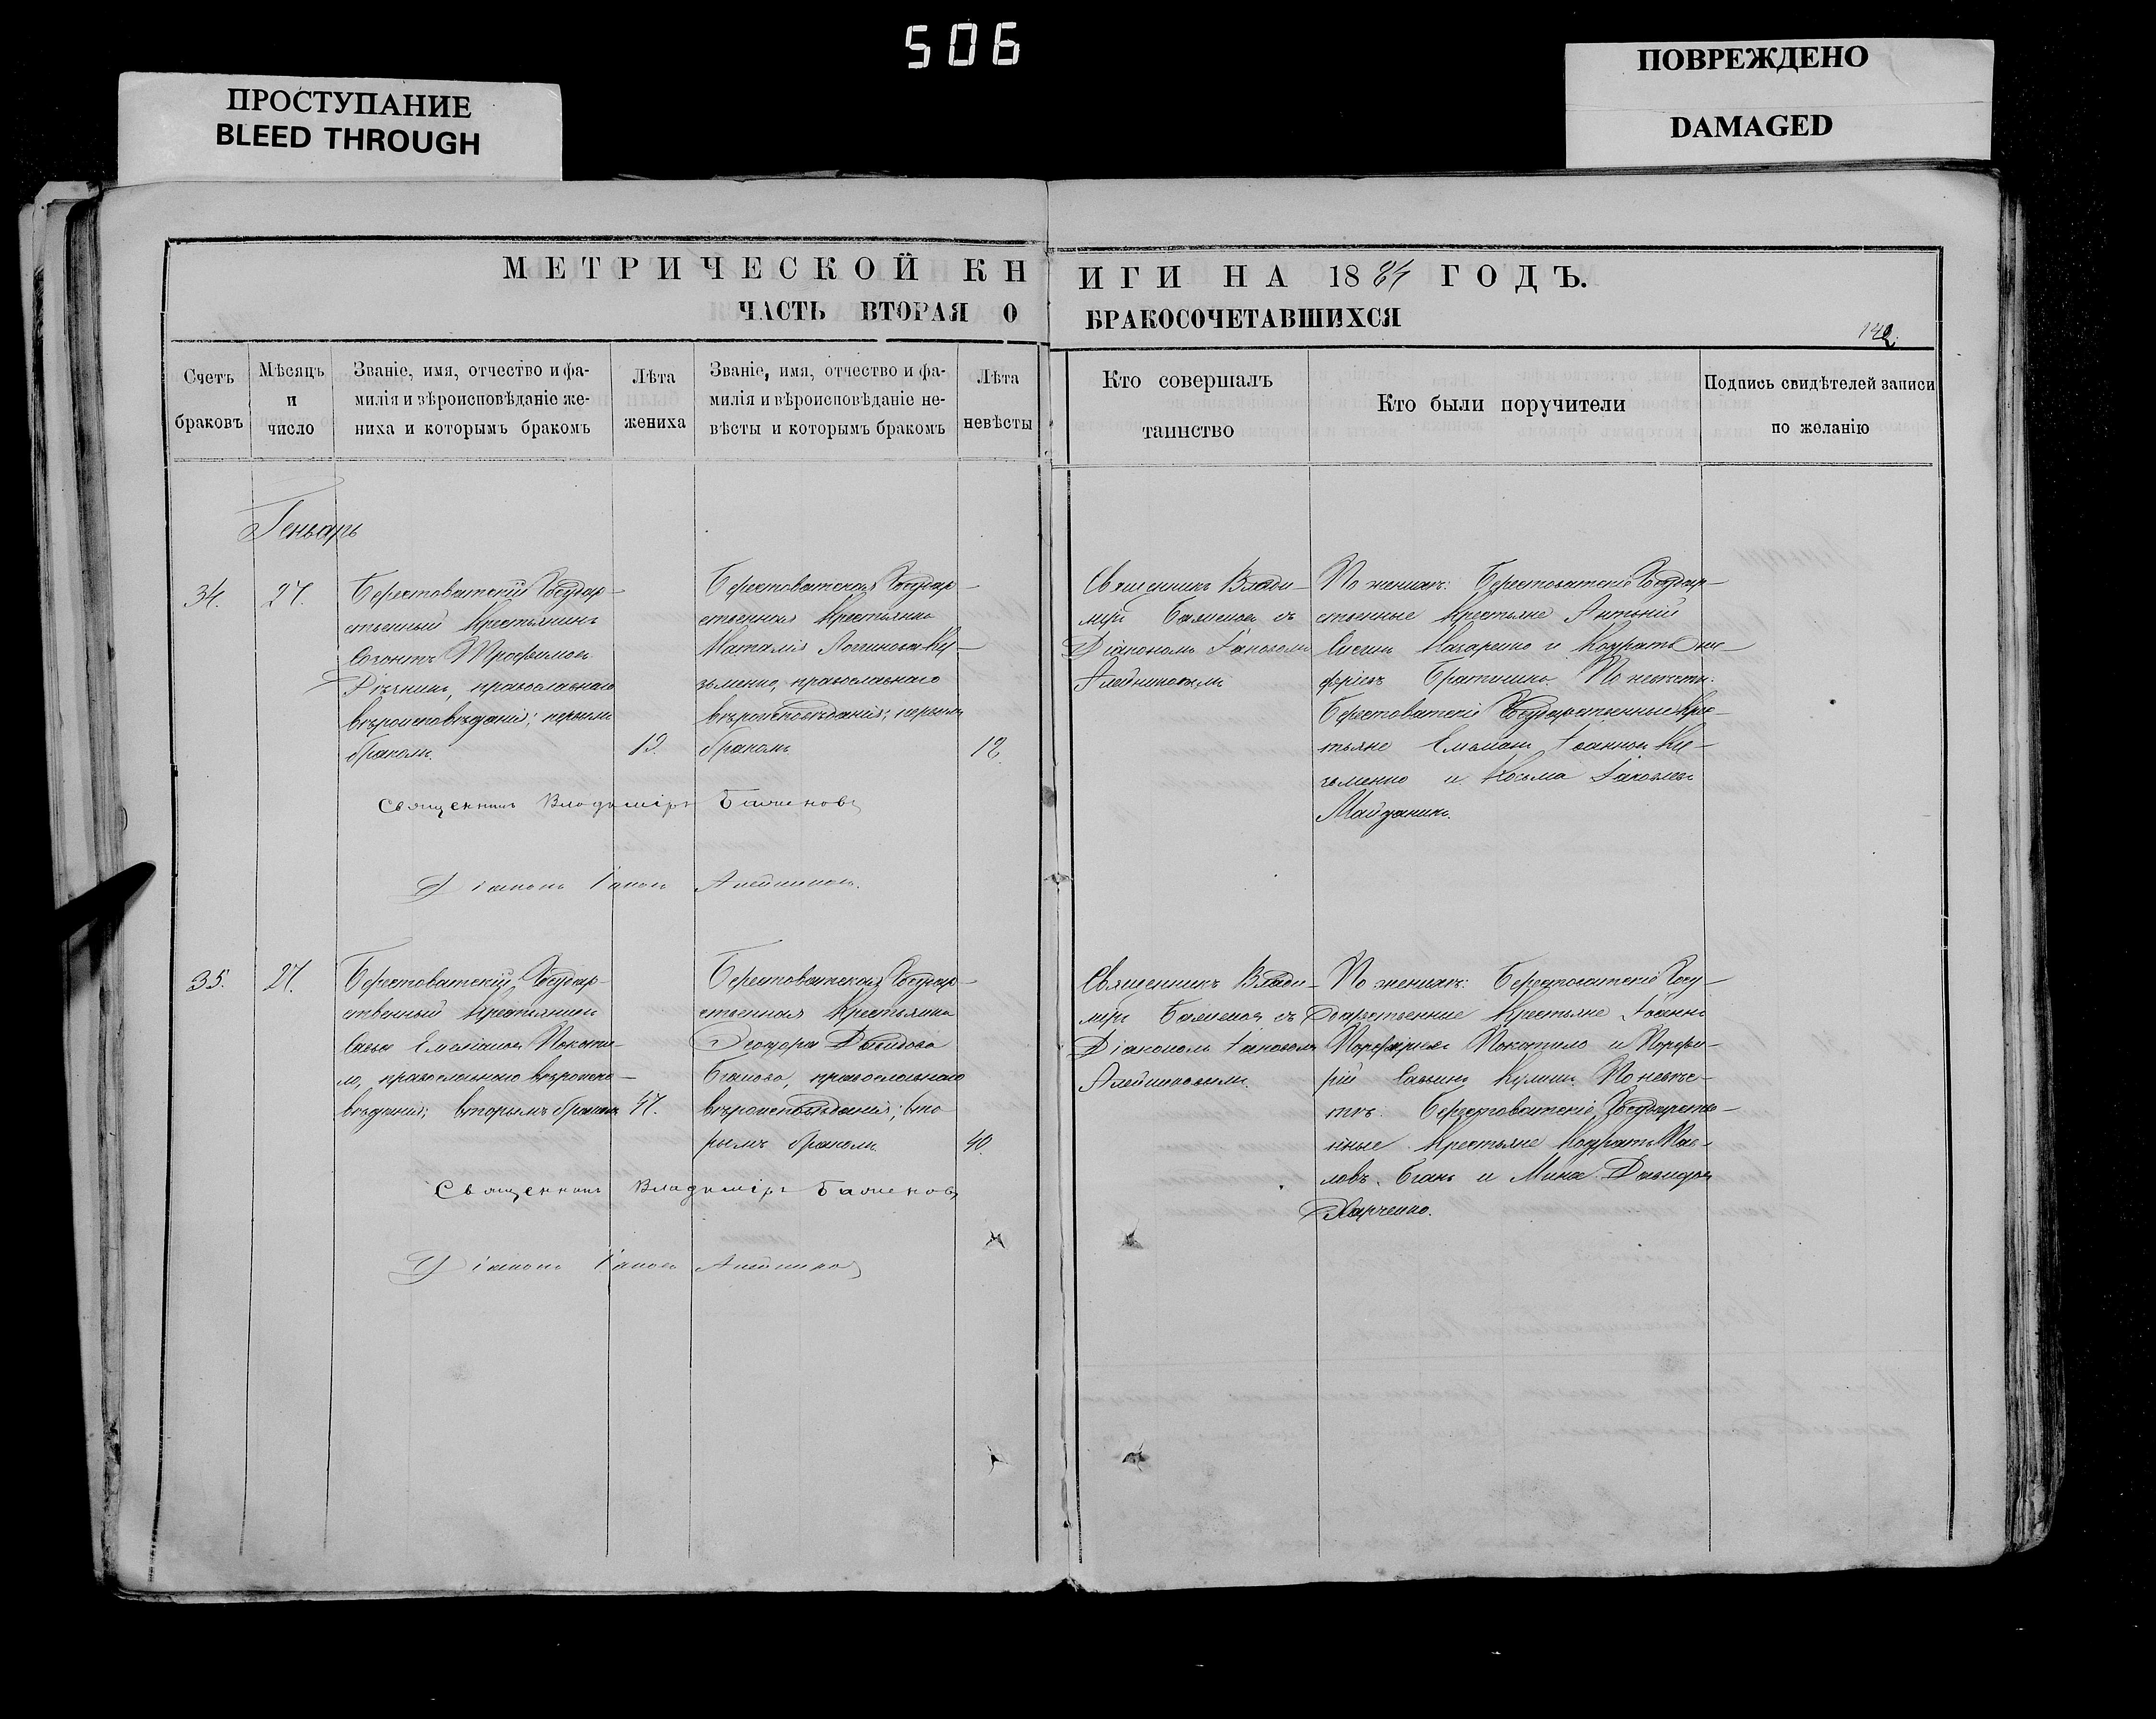 506
ПРОСТУПАНИЕ
BLEED THROUGH
ПОВРЕЖДЕНО
DAMAGED
МЕТРИЧЕСКОЙ КНИГИ НА 1884 ГОДЪ.
ЧАСТЬ ВТОРАЯ О БРАКОСОЧЕТАВШИХСЯ
142.
Счетъ
браковъ
Мѣсяцъ
и
число
Званіе, имя, отчество и фа-
милія и вѣроисповѣданіе же-
ниха и которымъ бракомъ
Лѣта
жениха
Званіе, имя, отчество и фа-
милія и вѣроисповѣданіе не-
вѣсты и которымъ бракомъ
Лѣта
невѣсты
Кто совершалъ
таинство
Кто были поручители
Подпись свидѣтелей записи
по желанію
Геньарь
34.
27.
Берестоватскій Государ-
ственный Крестьянинъ
Созонтъ Трофимовъ
Різникъ, православнаго
вѣроисповѣданія; первымъ
бракомъ.
19.
Берестоватская Государ-
ственная Крестьянка
Наталія Логинова Ку-
зьменко, православнаго
вѣроисповѣданія; первымъ
бракомъ
Священникъ Влади-
міръ Баженовъ съ
Діакономъ Іаковомъ
Алейниковымъ
По женихѣ: Берестоватскіе Государ-
ственные Крестьяне Антоній
Назаренко и Кодратъ
По невѣстѣ:
Берестоватскіе Государственные Крес-
тьяне Іоанновъ Ку-
зьменко и Косьма Іаковлевъ
Майданикъ.
Священникъ Владиміръ Баженовъ
Діаконъ Іаковъ Алейниковъ.
35.
27.
Берестоватскій Государ-
ственный Крестьянинъ
Савва Емеліановъ Покоти-
ло, православнаго вѣроиспо-
вѣданія; вторымъ бракомъ
47.
Берестоватская Государ-
ственная Крестьянка
Ѳеодора Давидова
Бганова, православнаго
вѣроисповѣданія; вто-
рымъ бракомъ.
40.
Священникъ Влади-
міръ Баженовъ съ
Діакономъ Іаковомъ
Алейниковымъ.
По женихѣ: Берестоватскіе Госу-
дарственные Крестьяне Іоаннъ
Порфиріевъ Покотило и Порфи-
рій Саввинъ Кулишъ. По невѣс-
тѣ: Берестоватскіе Государстве-
нные Крестьяне Кодратъ Пав-
ловъ Бганъ и Мина Давидовъ
Харченко.
Священникъ Владиміръ Баженовъ
Діаконъ Іаковъ Алейниковъ